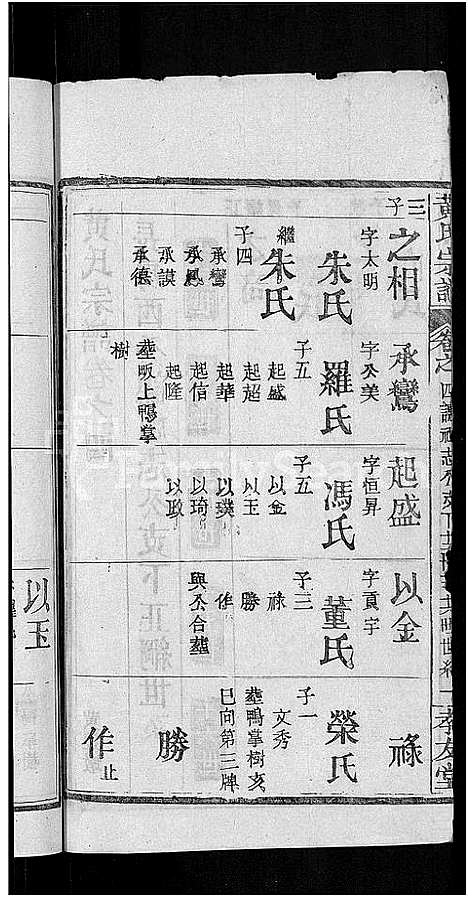 黃氏宗譜
卷之四
孝友堂
三子
之相
字太明
朱氏
繼朱氏
子四
承鸞
承鳳
承謨
承德
承鸞
字公美
羅氏
子五
起盛
起超
起華
起信
起隆
塟畈上鴨掌
樹
起盛
字恒昇
馮氏
子五
以金
以玉
以璞
以琦
以政
以金
字貢宇
董氏
子三
祿
勝
作
與仝合塟
祿
榮氏
子一
文秀
塟鴨掌樹亥
巳向第三牌
勝
作止
以玉